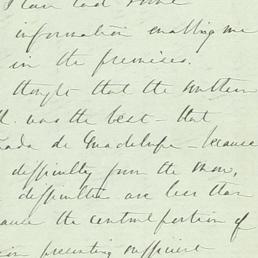 I have had some
information enabling me
in the premises.
thought that the northern
was the best – that
ada de Guadelupe – because
difficulty from the snow,
difficulties are less than
ause the central portion of
presenting sufficient